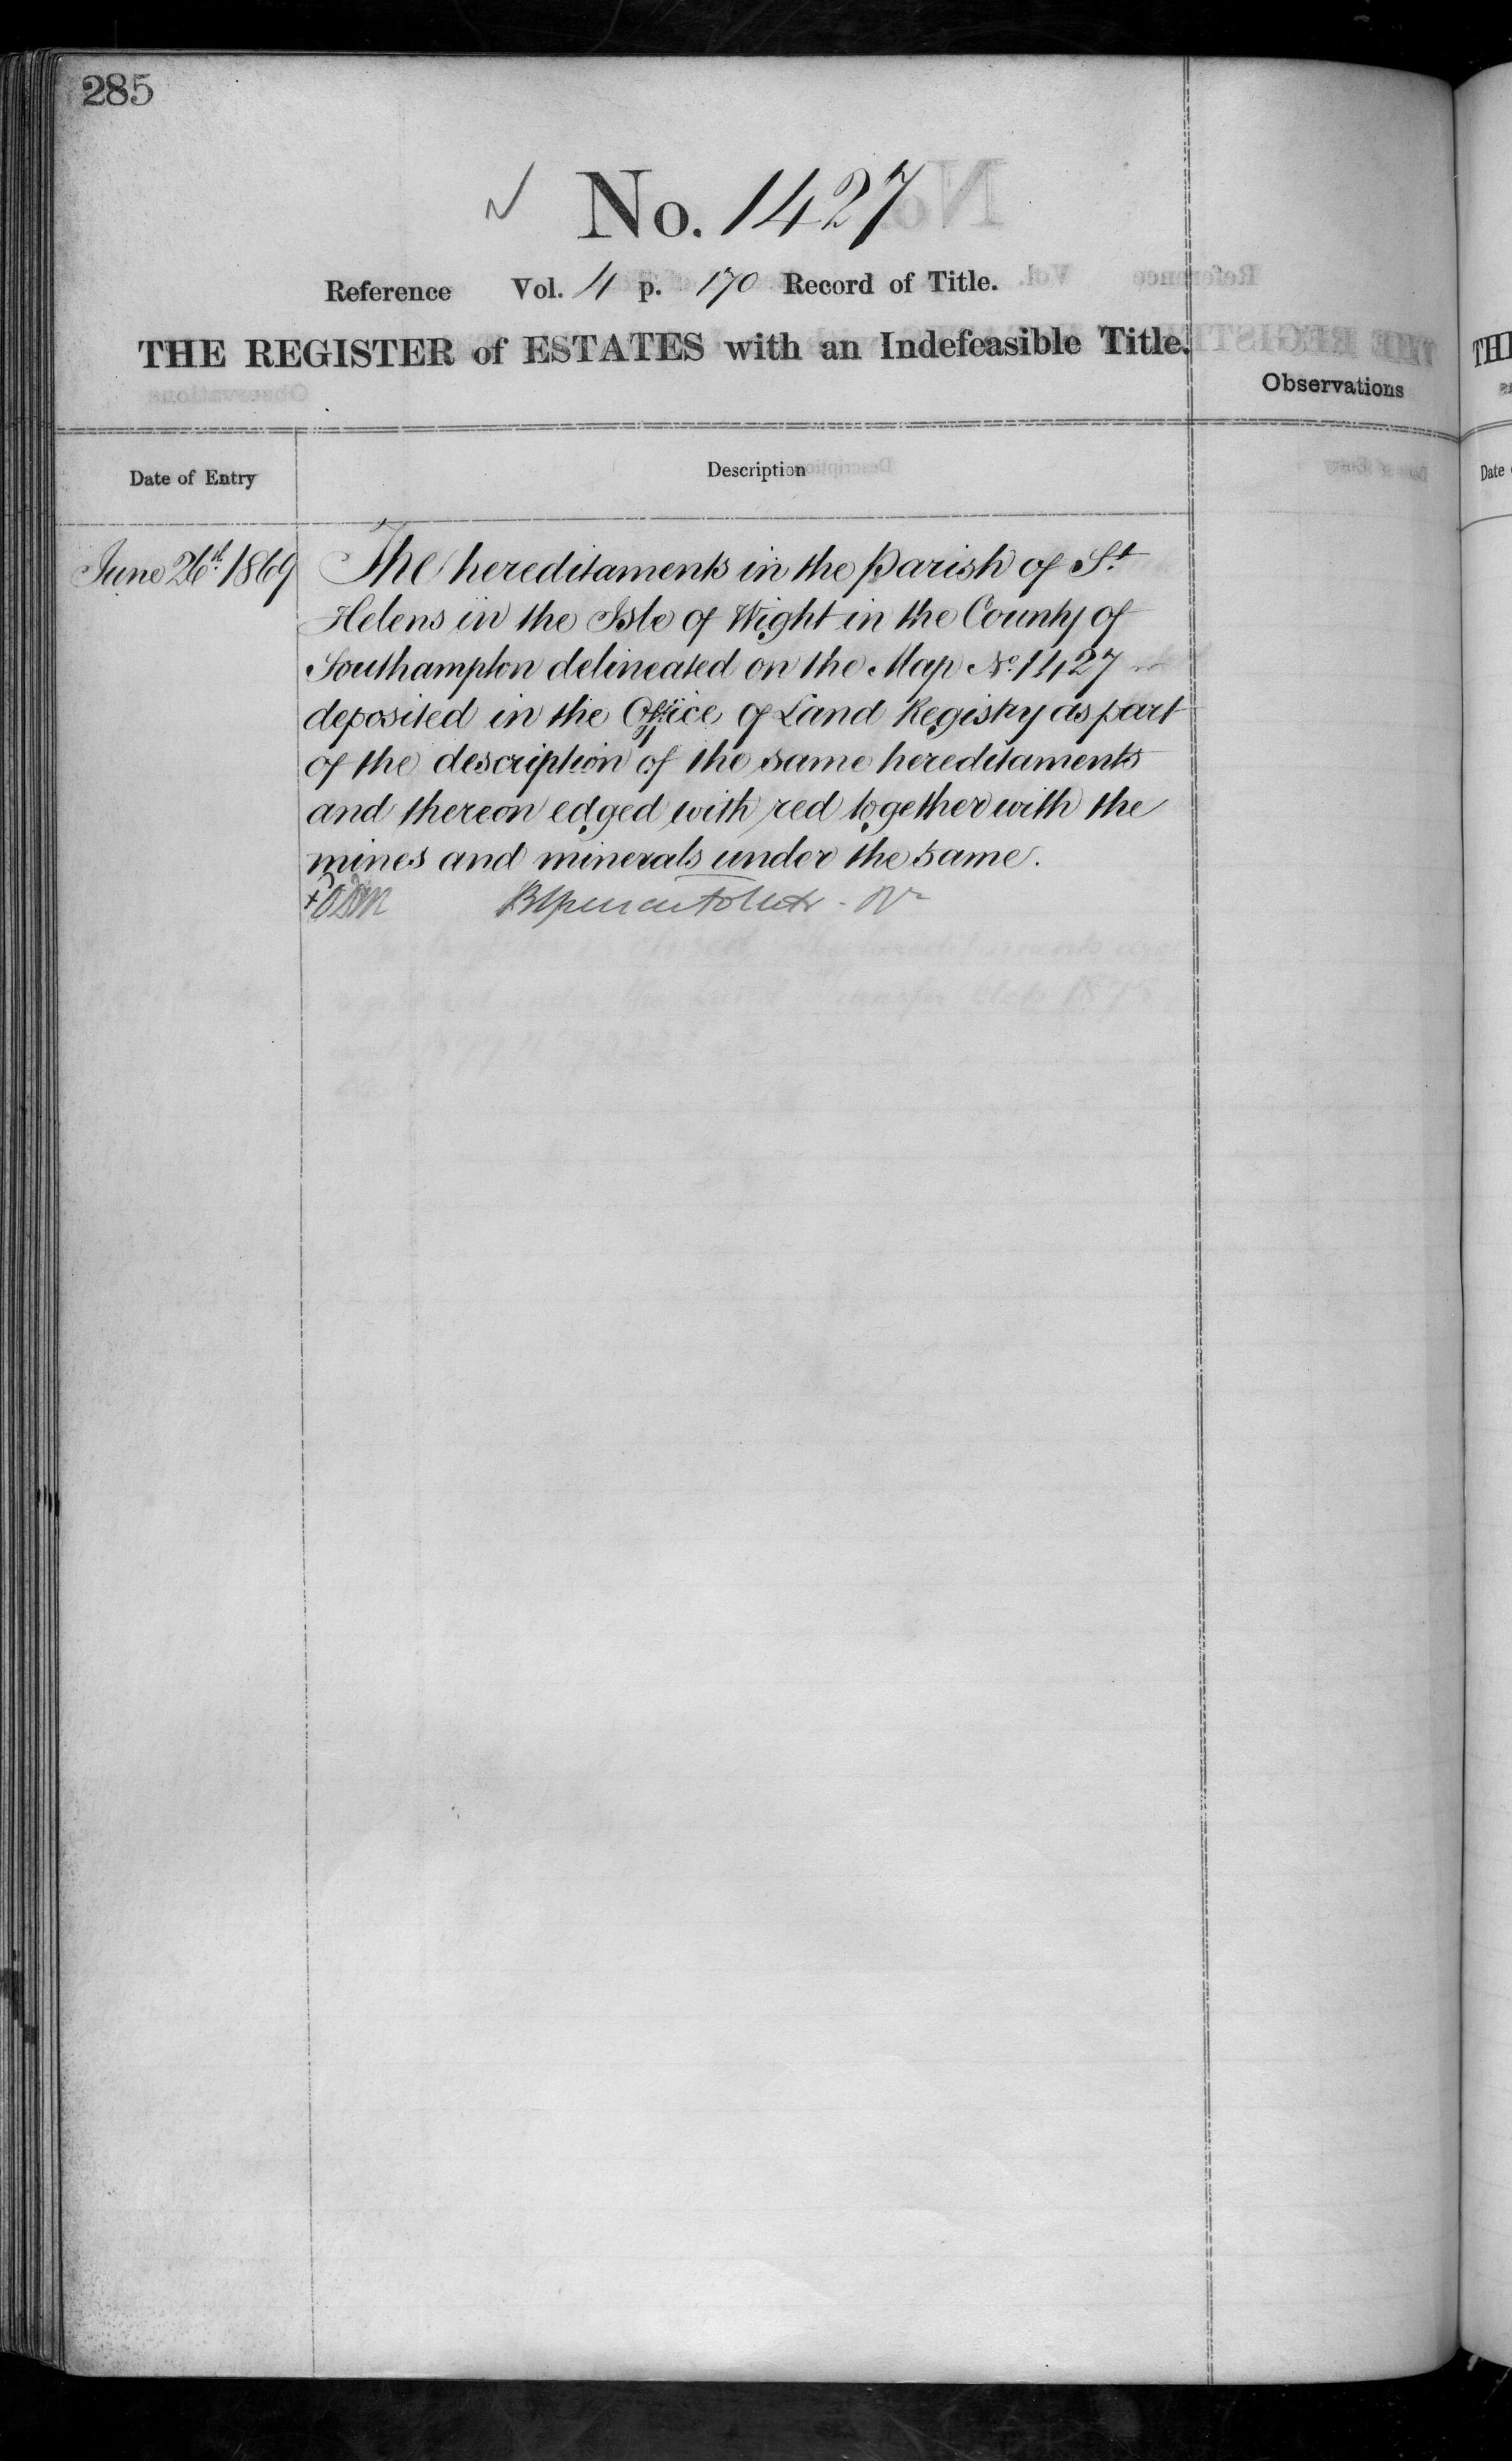 285
No. 1427
Reference Vol. 4 p. 170 Record of Title.
THE REGISTER of ESTATES with an Indefeasible Title.
Observations
Date of Entry
Description
June 26th 1869
The hereditaments in the Parish of St
Helens in the Isle of Wight in the County of
Southampton delineated on the Map No. 1427
deposited in the Office of Land Registry as part
of the description of the same hereditaments
and thereon edged with red together with the
mines and minerals under the same.